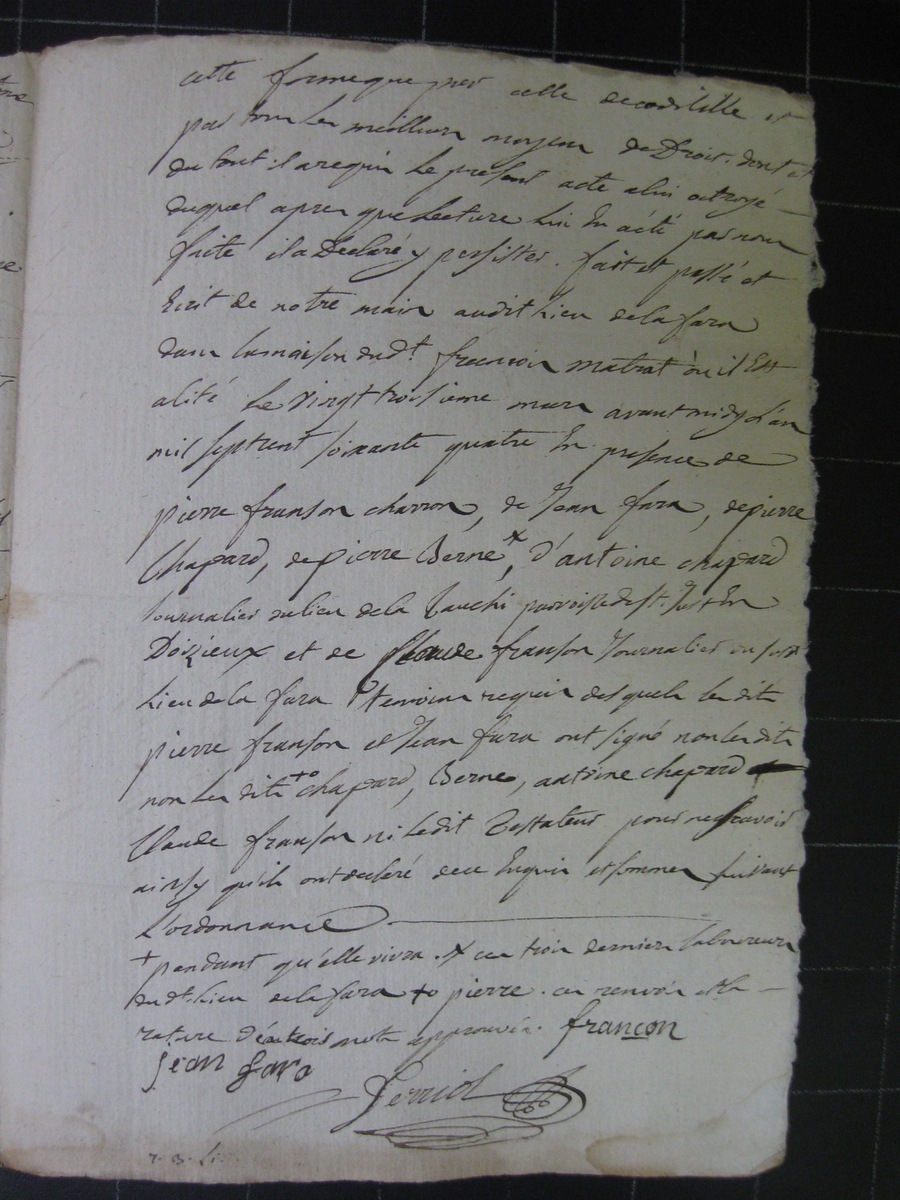 cette forme que par celle de codicille et
par tous les meilleurs moyens de Droit. dont et
du tout il a requis le present acte a lui octroyé
duquel apres que Lecture lui En a été par nous
faite il a Declaré y persister. fait et passé et
Ecrit de notre main audit Lieu de la fara
dans la maison dud.t francois matrat ou il Est
alité Le vingt troisieme mars avant midy L'an
mil sept cent soixante quatre En presence de
pierre franson charron, de Jean fara, de pierre
Chapard, de pierre Berne x, d'antoine chapard
Journalier du lieu de la parroisse de St. Just En
Doizieux et de Claude franson Journalier du
Lieu de la fara temoins requis desquels les dits
pierre franson et Jean fara ont signé non les dits
non les dits +o chapard, Berne, antoine chapard
Claude franson ni ledit Testateur pour ne scavoir
ainsy qu'ils ont declaré de ce Enquis et sommes suivant
L'ordonnance
+ pendant qu'elle vivra. x ces trois derniers laboureurs
du d.t lieu de la fara +o pierre. ces renvois et la
rature d'autres mots approuvés. françon
Jean fara